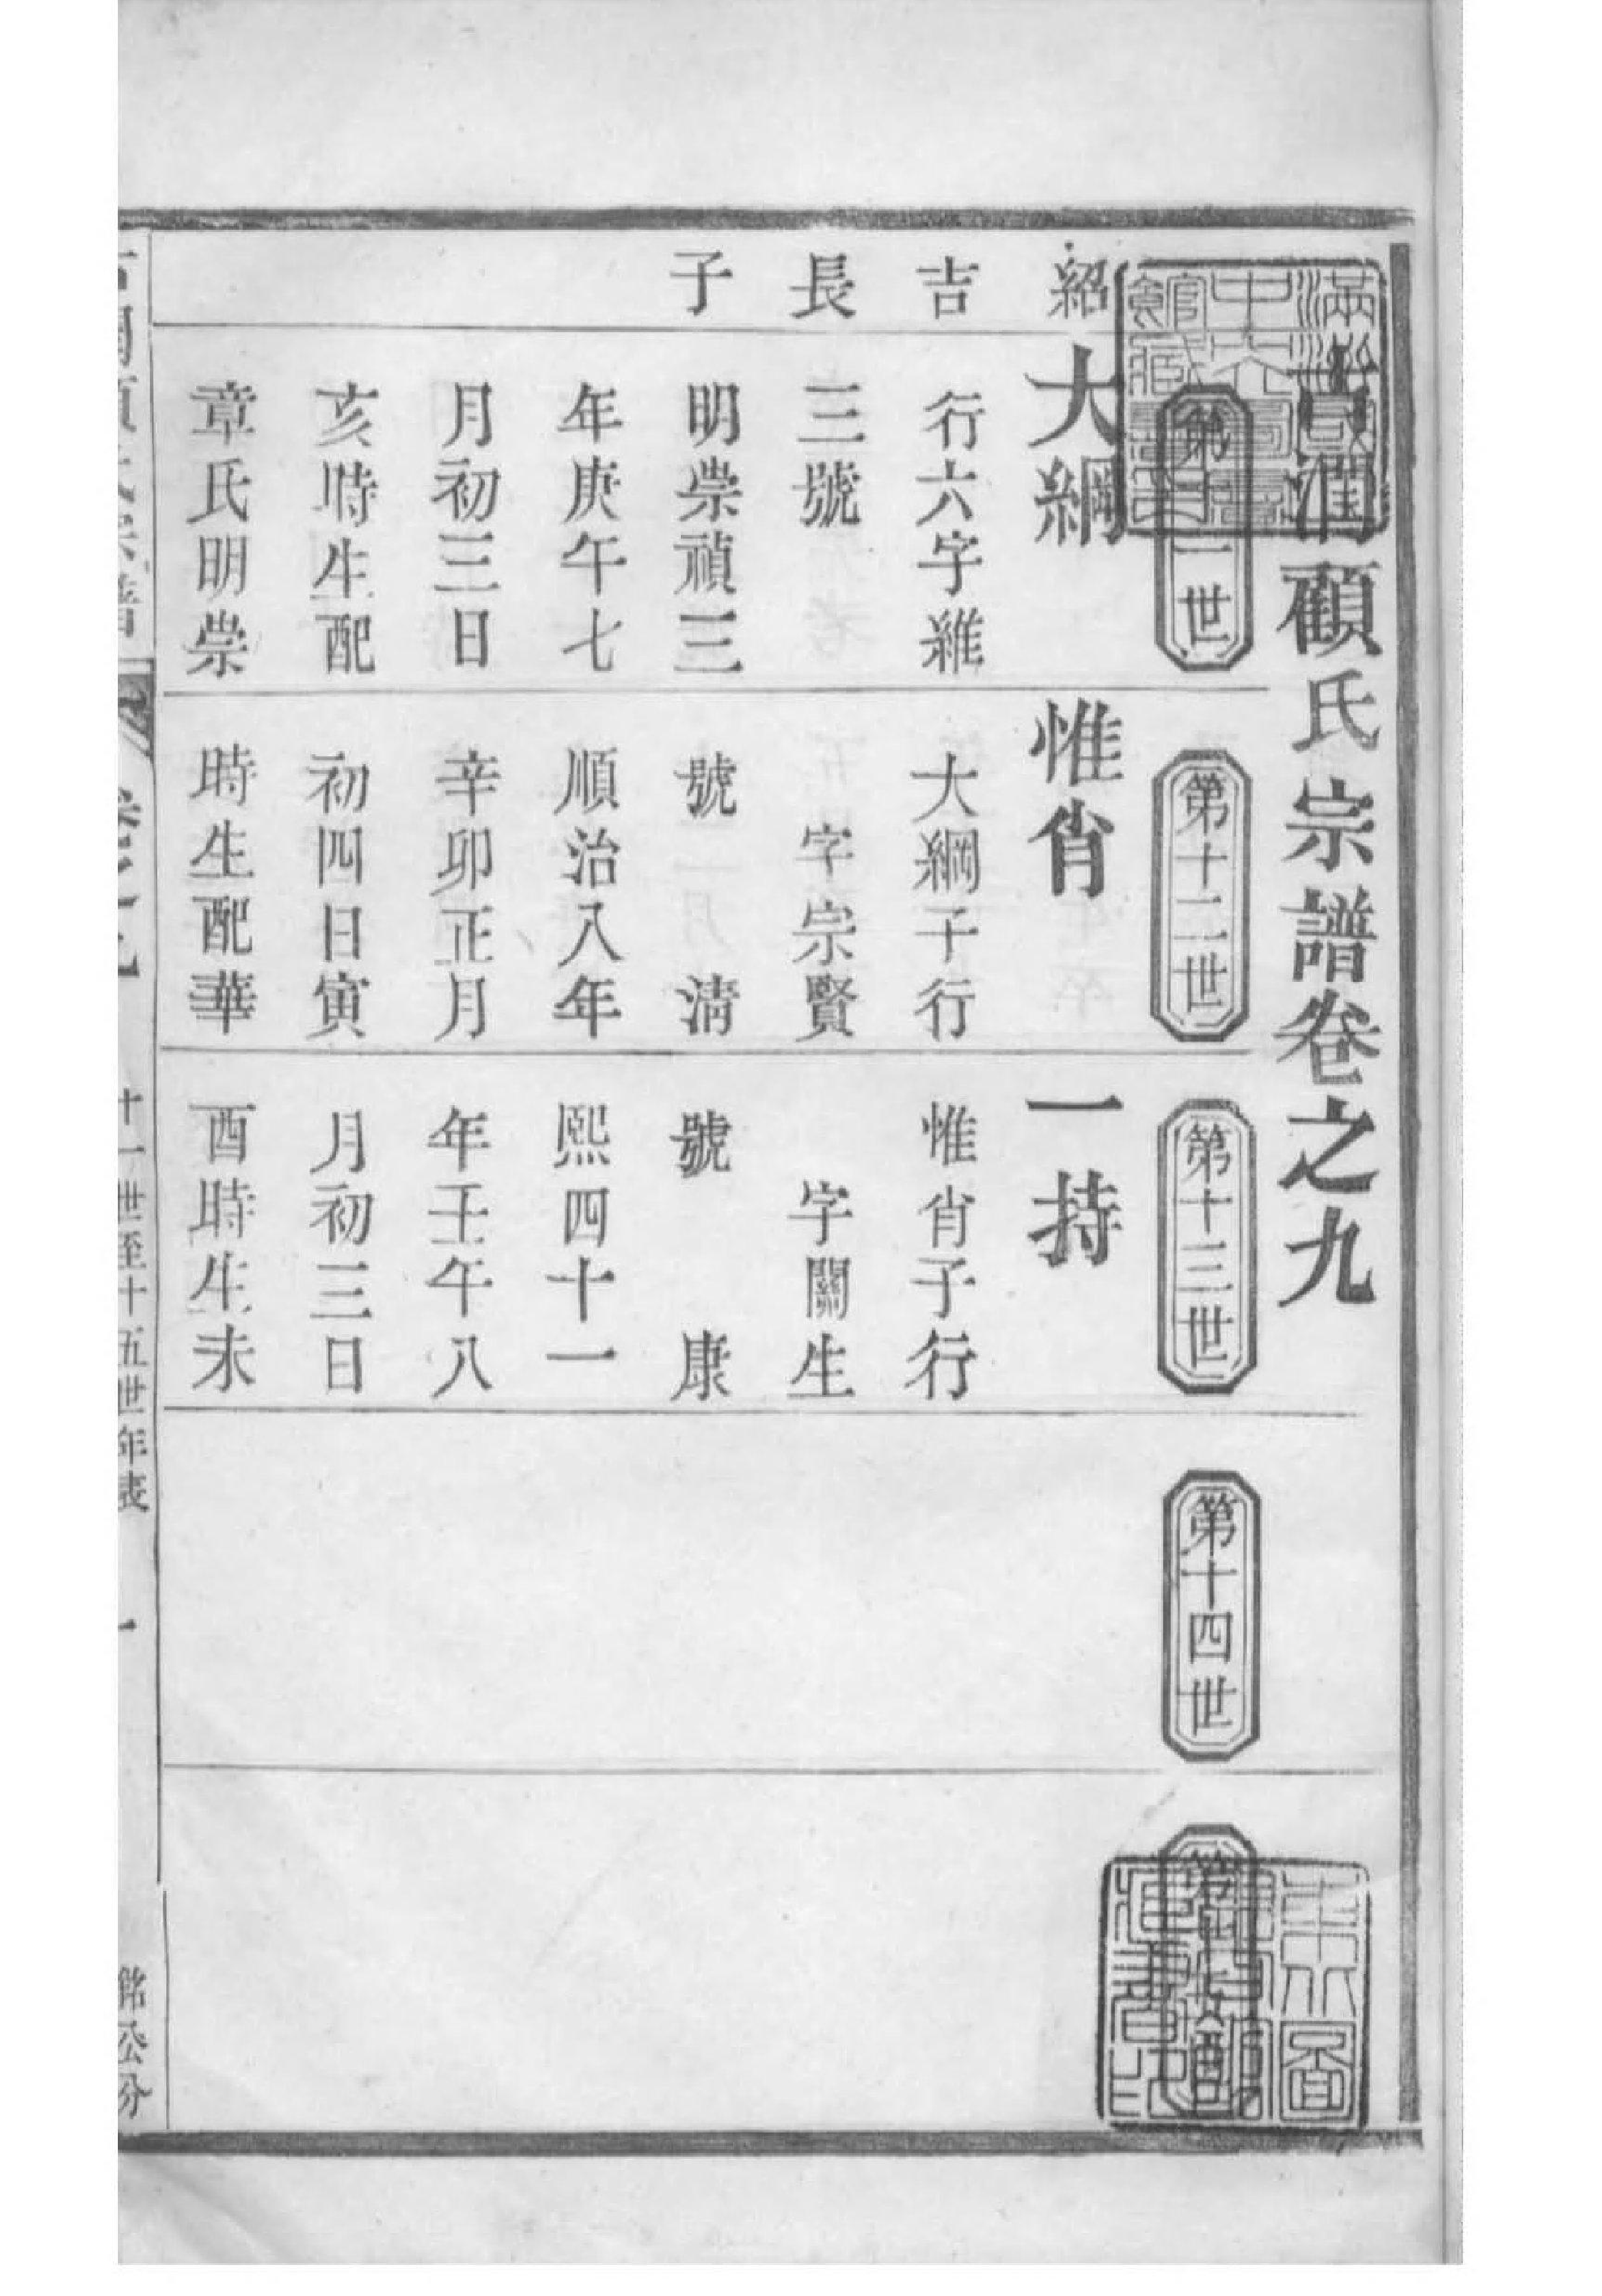 潤顧氏宗譜卷之九
第十一世
第十二世
第十三世
第十四世
紹吉長子
大綱
行六字維
三號
明崇禎三
年庚午七
月初三日
亥時生配
章氏明崇
惟肖
大綱子行
字宗賢
號 清
順治八年
辛卯正月
初四日寅
時生配華
一持
惟肖子行
字關生
號 康
熙四十一
年壬午八
月初三日
酉時生未
卷之九
十一世至十五世年表
一
銘公分